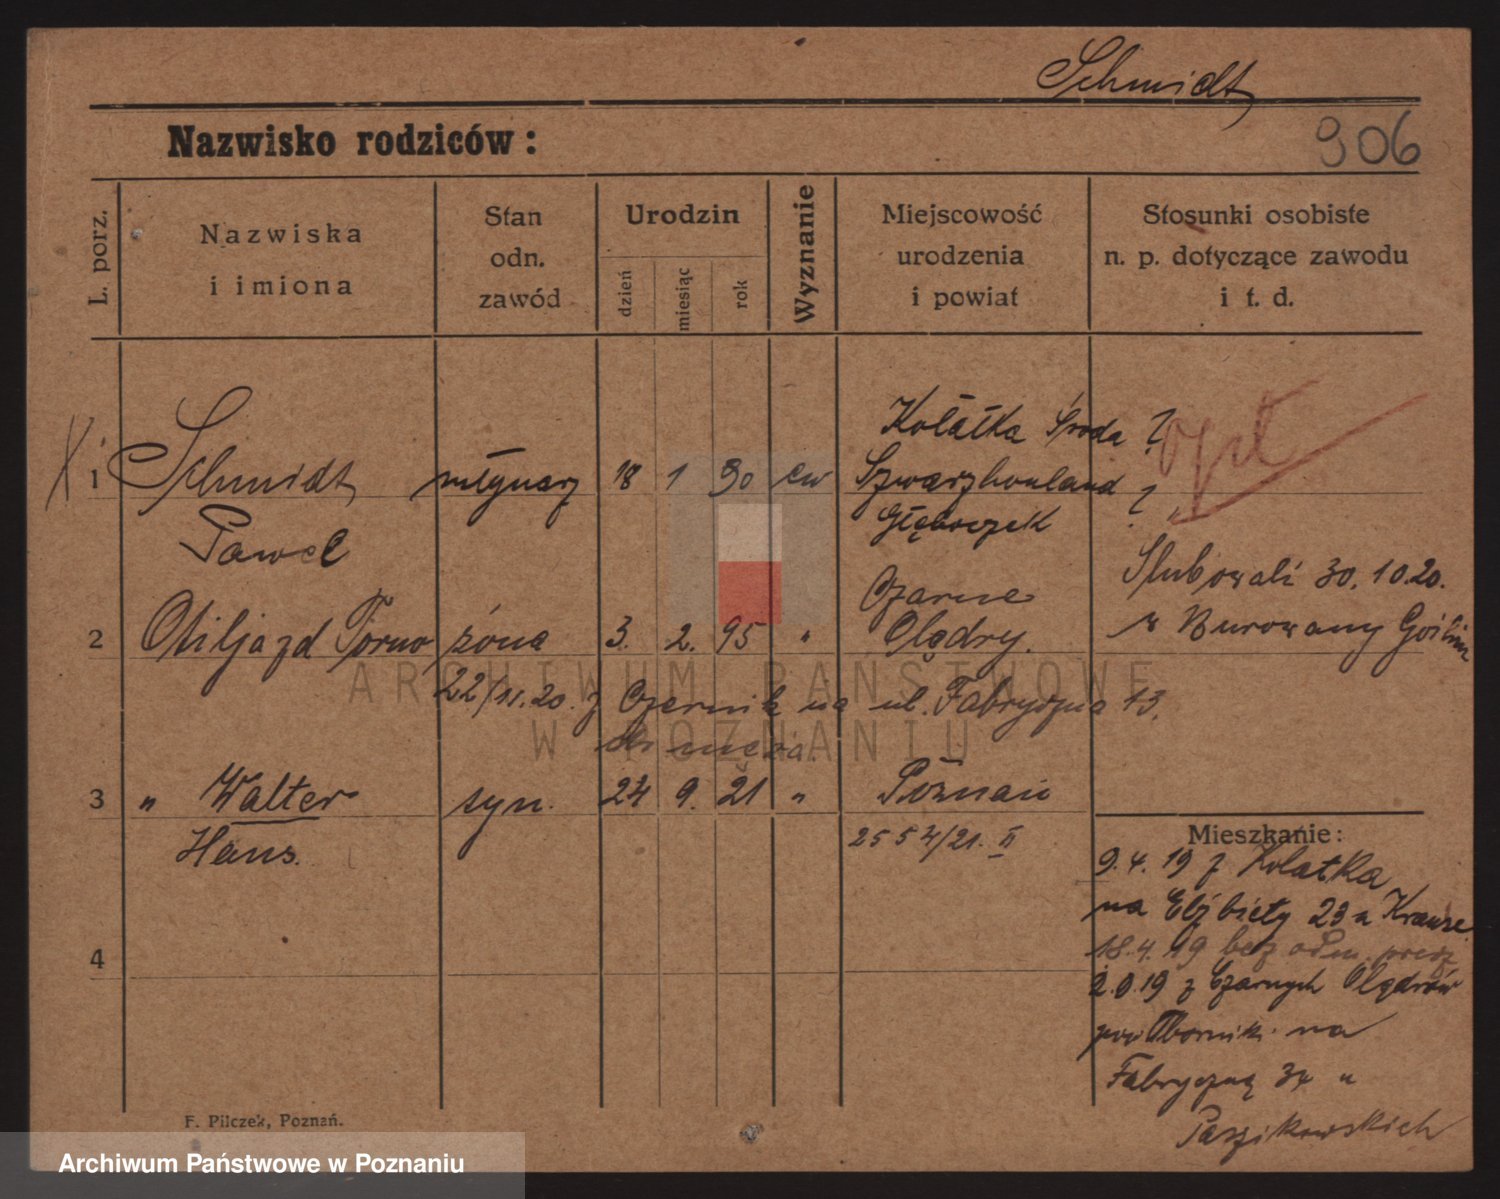 Schmidt
Nazwisko rodziców:
906
L. porz.
Nazwiska
i imiona
Stan
odn.
zawód
Urodzin
dzień
miesiąc
rok
Wyznanie
Miejscowość
urodzenia
i powiat
Stosunki osobiste
n. p. dotyczące zawodu
i t. d.
Kołatka Środa ?
1 Schmidt młynarz 18 1 90 ew Szwarzhauland ?
Paweł Głęboczek
opt
Czarne
Ślubowali 30.10.20.
2 Otilja zd Torno żona 3. 2. 95 " Olędry.
w Murowany Goślin
22/11.20. z Czernik na ul. Fabryczna 13.
do męża.
3 " Walter syn. 24 9. 21 " Poznań
Hans. 2554/21. II
Mieszkanie:
9.4.19 z Kolatka
na Elżbiety 23 u Krause
18.4.19 bez odm.
2.9.19 z Czarnych Olędrów
pow Obornik. na
Fabryczną 34 u
Paszikowskich
4
F. Pilczek, Poznań.
ARCHIWUM PAŃSTWOWE
W POZNANIU
Archiwum Państwowe w Poznaniu